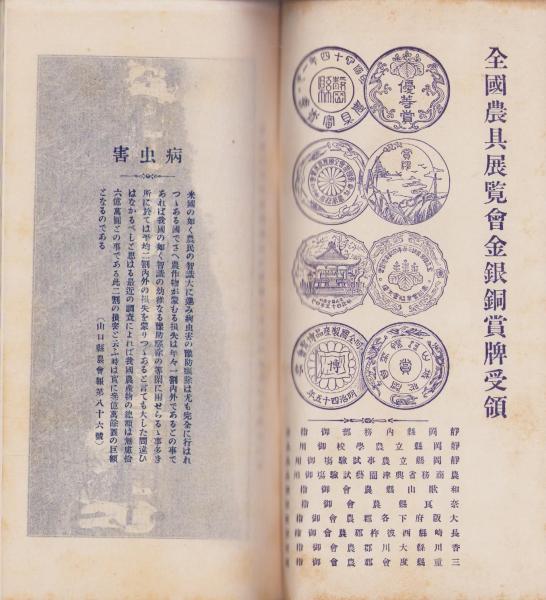 全國農具展覽會金銀銅賞牌受領
優等賞
賞牌
賞
博
明治四十五年
靜岡縣内務部御指
靜岡縣立農學校御用
靜岡縣立農事試驗場御用
農商務省興津園藝試驗場御用
和歌山縣農會御指
奈良縣農會御指
大阪府下各郡農會御指
長崎縣西彼杵郡農會御指
香川縣大川郡農會御指
三重縣度會郡農會御指
病虫害
米國の如く農民の智識大に進み病虫害の豫防驅除は尤も完全に行はれ
つゝある國でさへ農作物が蒙むる損失は年々一割内外であるとの事で
あれば我國の如く智識の幼稚なる豫防驅除の等閑に附せらるゝ事多き
所に於ては平均二割内外の損失を蒙りつゝあると言ても大した間違ひ
はなかるべしと思はる最近の調査によれば我國農産物の總額は無慮拾
六億萬圓との事である此二割の損害と云ふ時は實に參億萬餘圓の巨額
となるのである
(山口縣農會報第八十六號)